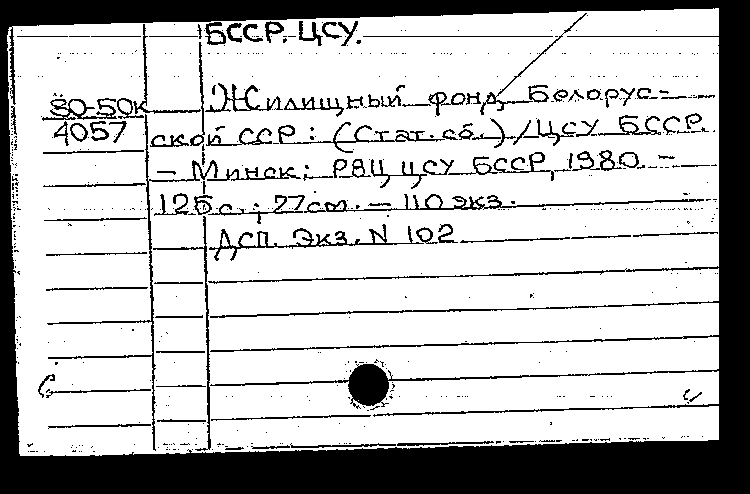 БССР. ЦСУ.
80-50к
4057
Жилищный фонд Белорус-
ской ССР: (Стат. сб.) / ЦСУ БССР.
– Минск: РВЦ ЦСУ БССР, 1980. –
125 с.; 27 см. – 110 экз.
ДСП. Экз. N 102.